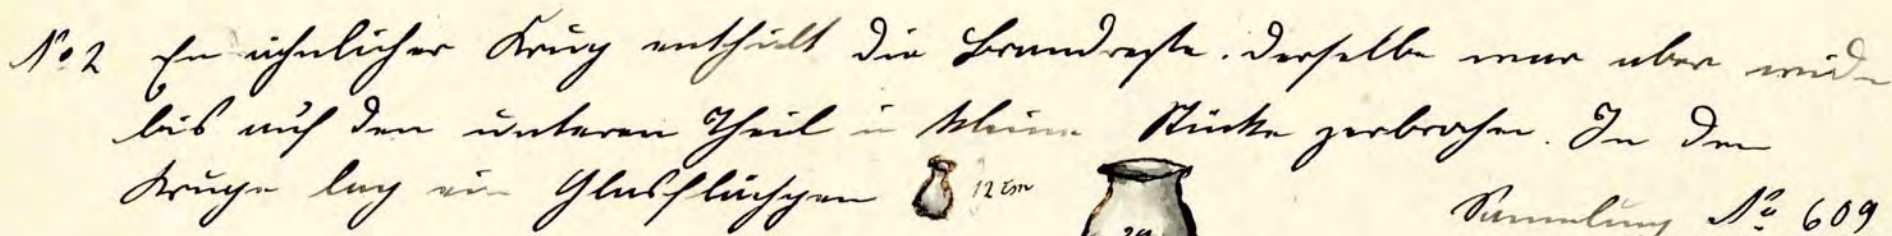 No. 2 Ein ähnlicher Krug enthielt die Brandreste. Derselbe war aber
bis auf den unteren Theil in kleine Stücke zerbrochen. In dem
Kruge lag ein Glasfläschgen 12 cm
Sammlung No 609